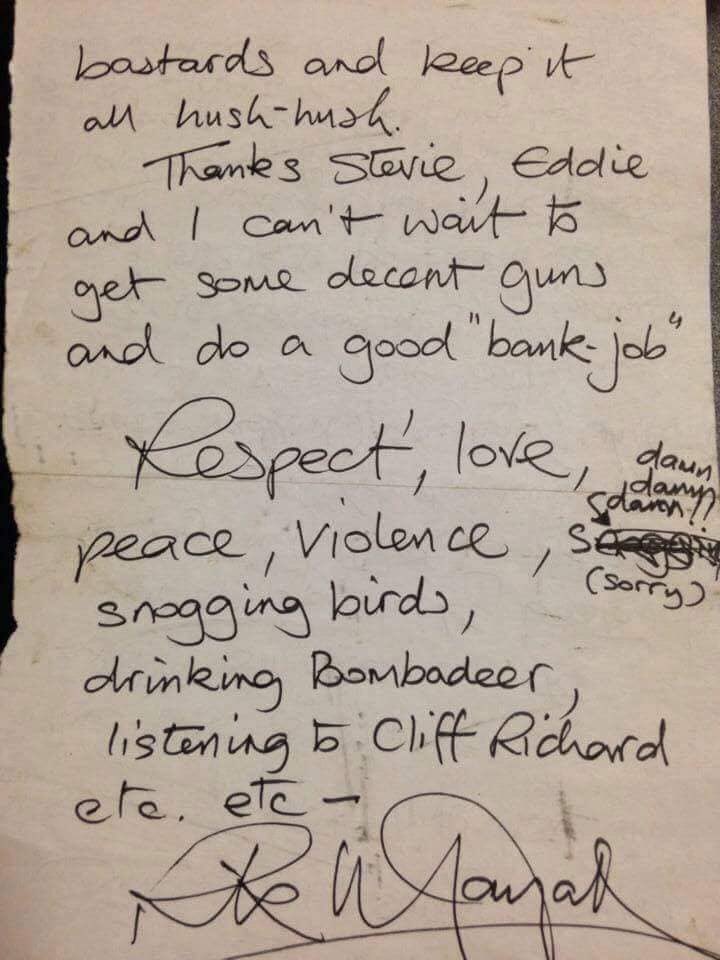 bastards and keep it
all hush-hush.
Thanks Stevie, Eddie
and I can't wait to
get some decent guns
and do a good "bank-job"
Respect, love,
damn
damn
damn!!
peace, violence, s
(sorry)
snogging birds,
drinking Bombadeer,
listening to Cliff Richard
etc. etc —